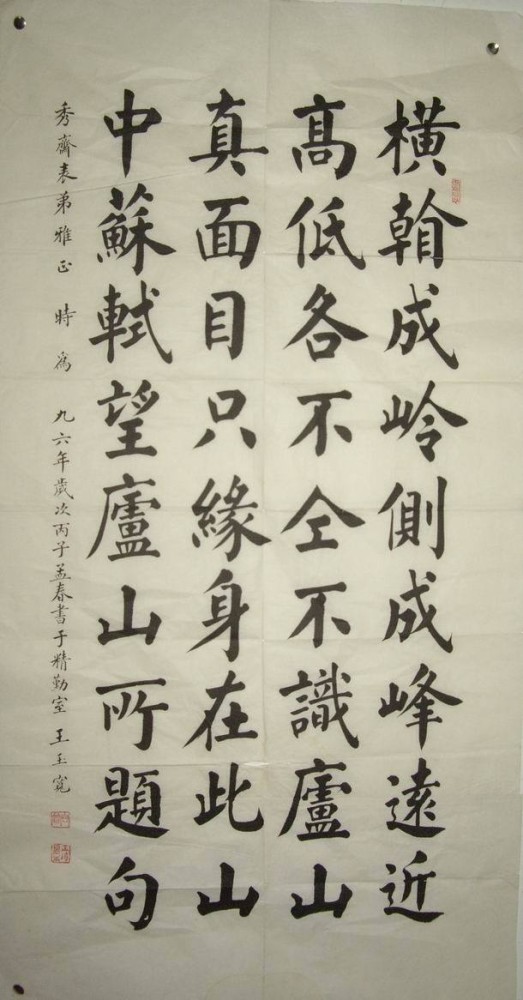 橫看成岭側成峰遠近
髙低各不仝不識廬山
真面目只緣身在此山
中蘇軾望廬山所題句
秀齋表弟雅正 時為 九六年歲次丙子孟春書于精勤室 王玉寬